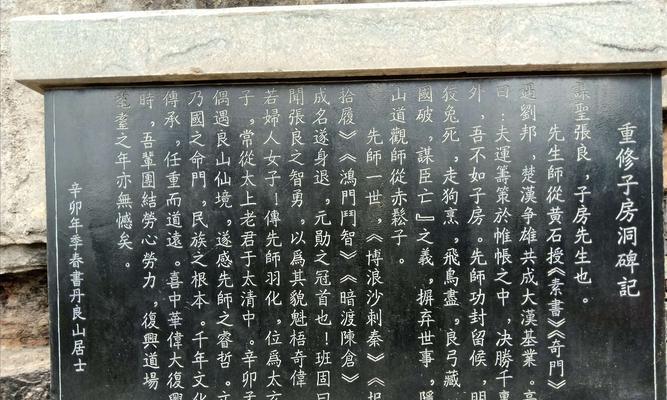 重修子房洞碑記
謀聖張良，子房先生也。
先生師從黃石授《素書》《奇門》
遇劉邦，楚漢争雄共成大漢基業。高
曰：夫運籌策於帷帳之中，决勝千裏
外，吾不如子房。先師功封留候，明
狡兔死，走狗烹，飛鳥盡，良弓藏
國破，謀臣亡』之義，摒弃世事，隱
山道觀師從赤鬆子。
先師一世，《博浪沙刺秦》《圯
拾履》《鴻門鬥智》《暗渡陳倉》
成名遂身退，元勛之冠首也！班固曰
聞張良之智勇，以爲其貌魁梧奇偉
若婦人女子！傳先師羽化，位爲太玄
子，常從太上老君于太清中。辛卯孟
偶遇良山仙境，遂感先師之睿哲。立
乃國之命門，民族之根本。千年文化
傳承，任重而道遠。喜中華偉大復興
時，吾輩團結勞心勞力，復興道場
耄耋之年亦無憾矣。
辛卯年季春書丹良山居士